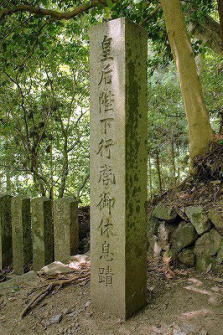 皇后陛下行啓御休息蹟